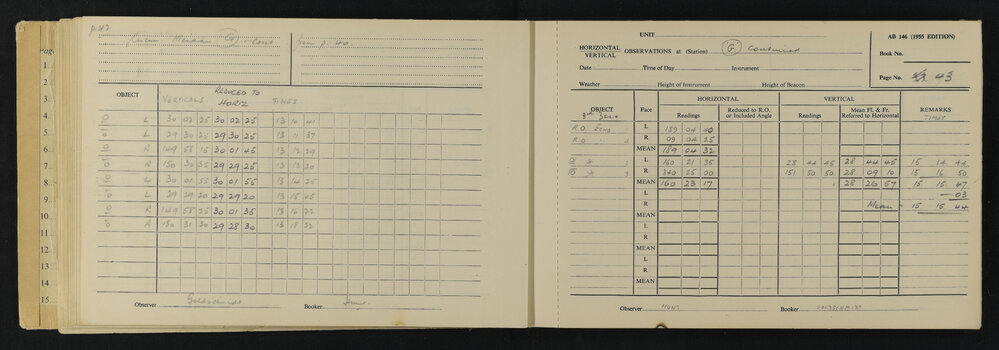 p 42
Meridian G Cont from p. 40.
OBJECT VERTICALS REDUCED TO HORIZ TIMES
L 30 02 25 30 02 25 13 10 41
L 29 30 25 29 30 25 13 11 37
R 149 58 15 30 01 45 13 12 29
R 150 30 35 29 29 25 13 13 20
L 30 01 55 30 01 55 13 14 25
L 29 29 20 29 29 20 13 15 45
R 149 58 25 30 01 35 13 16 22
R 150 31 30 29 28 30 13 18 22
Observer Goldschmidt Booker Hunt
Page
1.
2.
3.
4.
5.
6.
7.
8.
9.
10.
11.
12.
13.
14.
15.
UNIT
AB 146 (1955 EDITION)
HORIZONTAL VERTICAL OBSERVATIONS at (Station) G continued
Book No.
Date Time of Day Instrument
Page No. 43
Weather Height of Instrument Height of Beacon
OBJECT Face HORIZONTAL VERTICAL REMARKS
Readings Reduced to R.O. or Included Angle Readings Mean Fl. & Fr. Referred to Horizontal TIMES
R.O. Echo L 189 04 40
R.O. " R 09 04 25
MEAN 189 04 32
L 160 21 35 28 44 45 28 44 45 15 14 44
R 340 25 00 151 50 50 28 09 10 15 16 50
MEAN 160 23 17 28 26 57 15 15 47
L - 03
R Mean - 15 15 44
MEAN
L
R
MEAN
L
R
MEAN
Observer HUNT Booker GOLDSCHMIDT